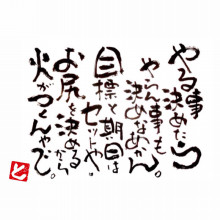 やる事
決めたら
やらん事も
決めなあかん。
目標と期日は
セットや。
お尻を決めるから
火がつくんやで。